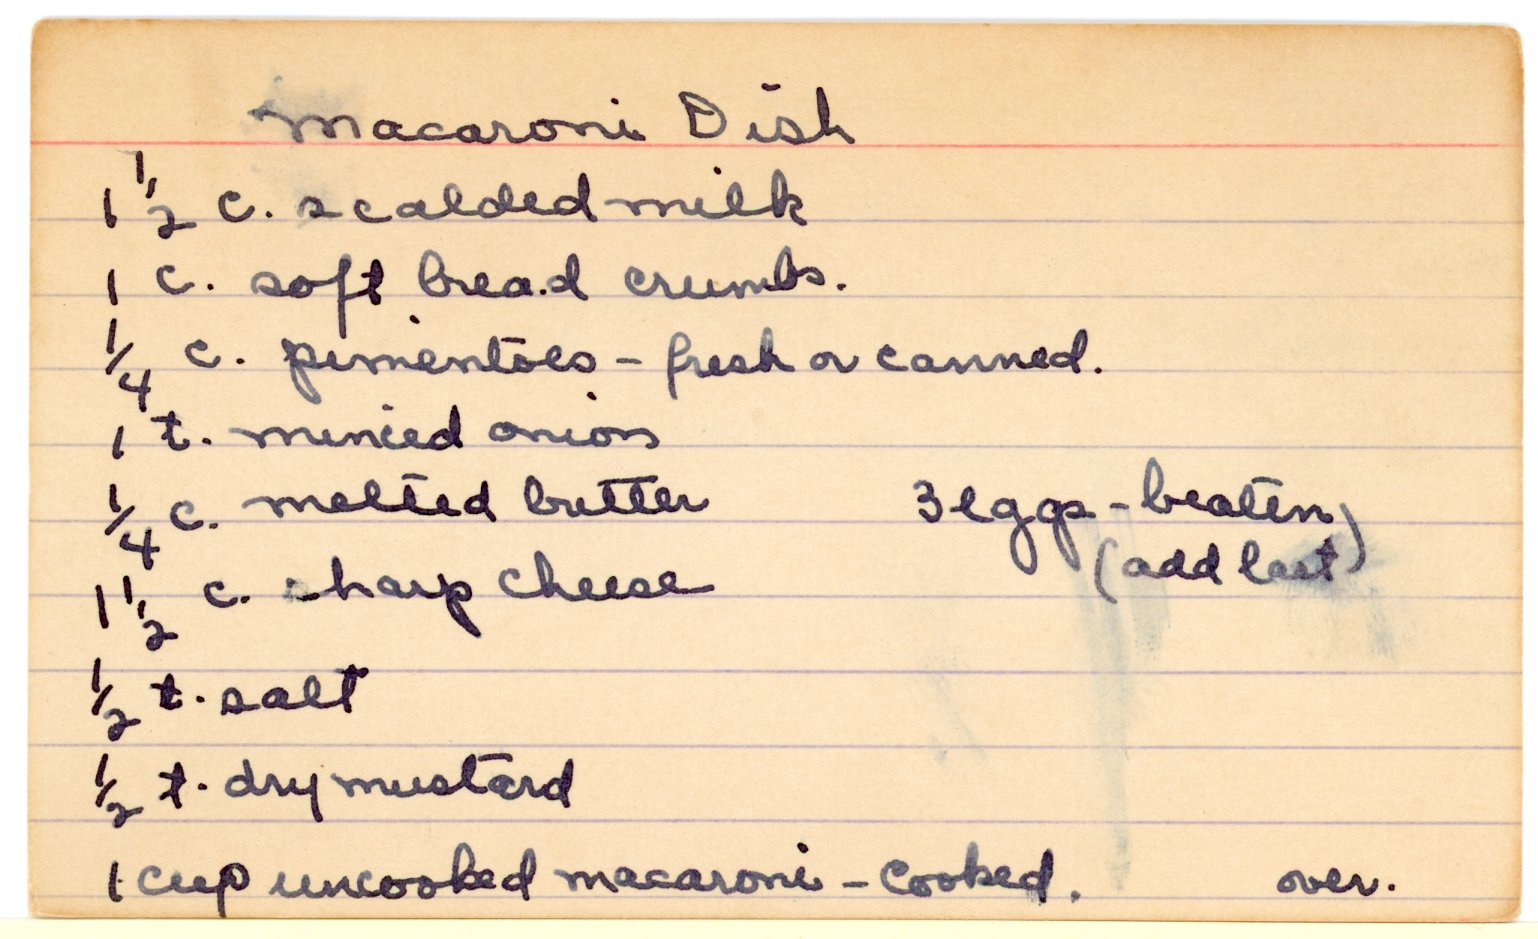 Macaroni Dish
1 1/2 c. scalded milk
1 c. soft bread crumbs.
1/4 c. pimentoes - fresh or canned.
1 t. minced onion
1/4 c. melted butter
3 eggs - beaten
(add last)
1 1/2 c. sharp cheese
1/2 t. salt
1/2 t. dry mustard
1 cup uncooked macaroni - cooked.
over.